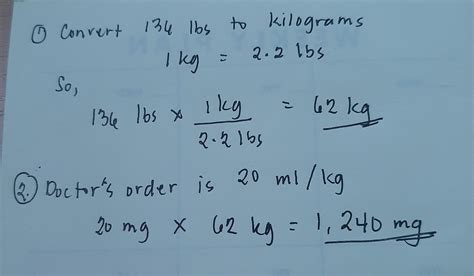 ① Convert 136 lbs to kilograms
1 kg = 2.2 lbs
So,
136 lbs x 1 kg / 2.2 lbs = 62 kg
② Doctor's order is 20 ml / kg
20 mg x 62 kg = 1,240 mg